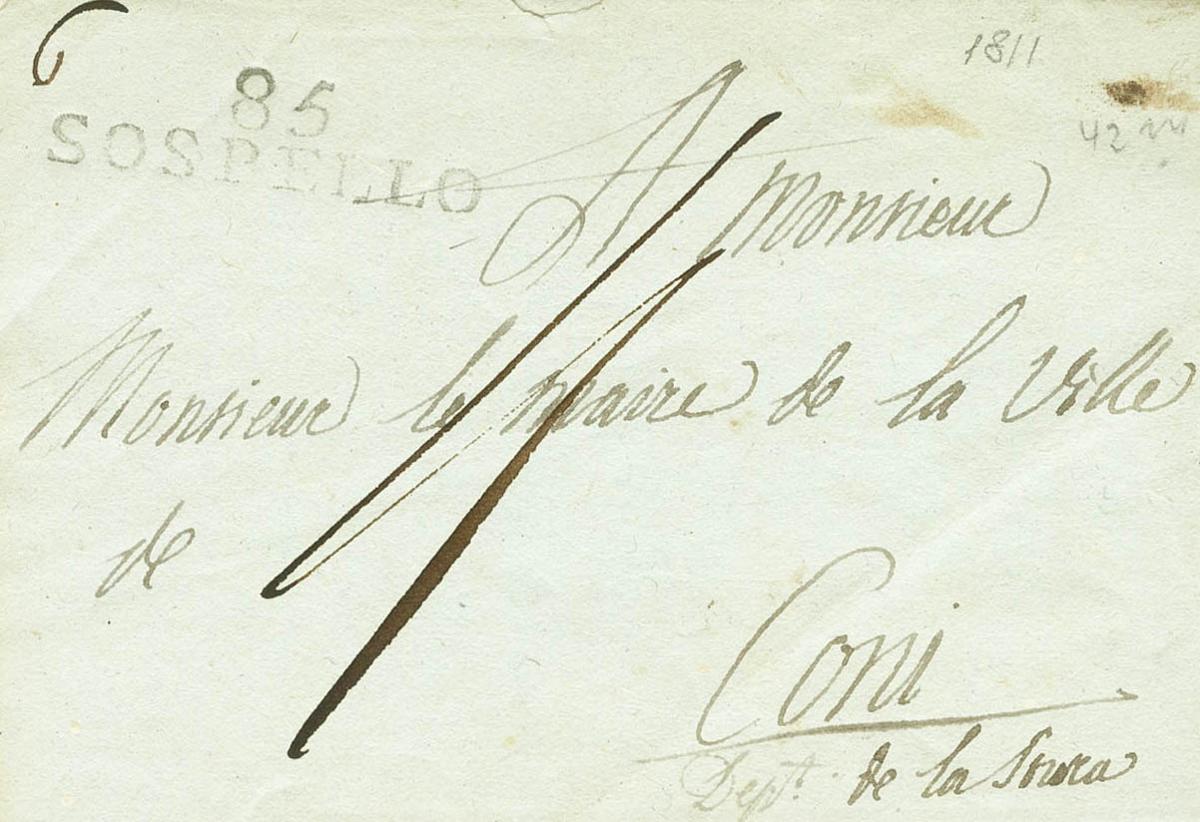 6
1811
85
SOSPELLO
42
A Monsieur
Monsieur le maire de la Ville
de
Coni
Dept. de la Stura